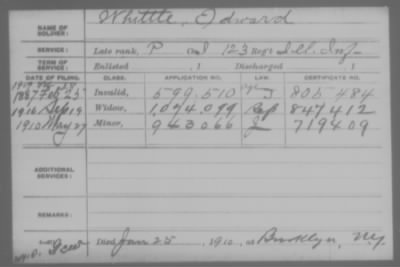 NAME OF SOLDIER: Whittle, Edward
SERVICE: Late rank, P Co. I 123 Reg't Ill. Inf.
TERM OF SERVICE: Enlisted , 1 Discharged , 1
DATE OF FILING. CLASS. APPLICATION NO. LAW. CERTIFICATE NO.
1887 Feb 25 Invalid, 599.510 J 805.484
1916 Sep 19 Widow, 1,074.099 847412
1910 May 27 Minor, 943066 J 719409
ADDITIONAL SERVICES:
REMARKS:
Died June 25, 1910, at Brooklyn, NY.